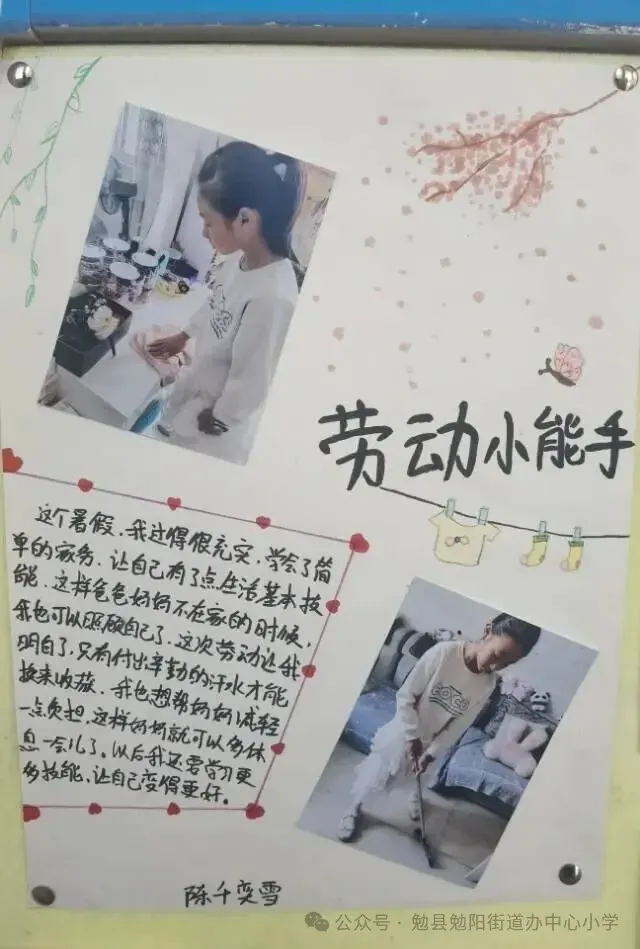 劳动小能手
这个暑假，我过得很充实，学会了简
单的家务，让自己有了点生活基本技
能，这样爸爸妈妈不在家的时候，
我也可以照顾自己了，这次劳动让我
明白了，只有付出辛勤的汗水才能
换来收获，我也想帮妈妈减轻
一点负担，这样妈妈就可以多休
息一会儿了。以后我还要学习更
多技能，让自己变得更好。
陈千奕雪
公众号·勉县勉阳街道办中心小学